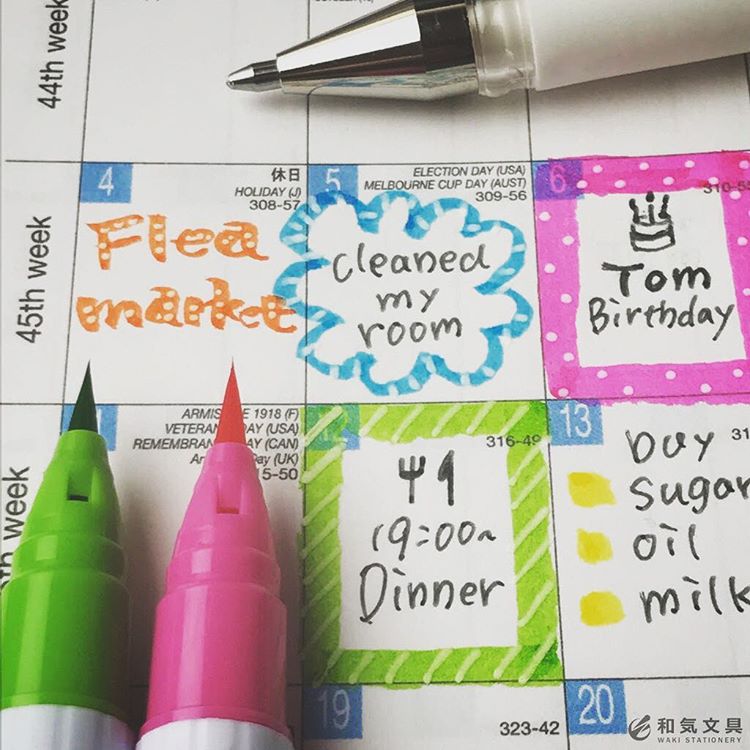 44th week
45th week
4
休日
HOLIDAY (J)
308-57
Flea
market
5
ELECTION DAY (USA)
MELBOURNE CUP DAY (AUST)
309-56
cleaned
my
room
6
Tom
Birthday
week
ARMISTICE 1918 (F)
VETERANS DAY (USA)
REMEMBRANCE DAY (CAN)
Day (UK)
15-50
12
316-49
19:00~
Dinner
13
buy
sugar
oil
milk
19
323-42
20
和気文具
WAKI STATIONERY